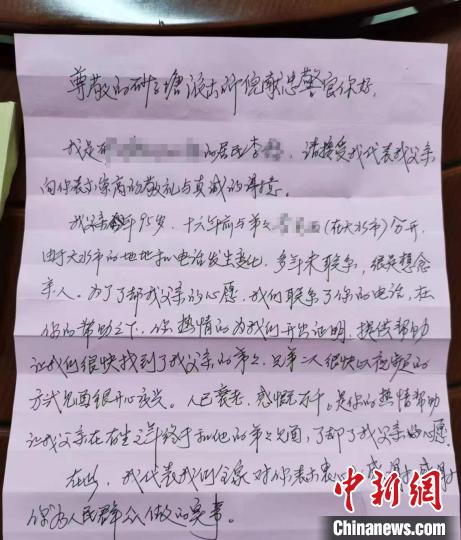 尊敬的砚瓦塘派出所倪献忠警官你好，
我是在的居民李，请接受我代表我父亲
向你表示崇高的敬礼与真诚的谢意。
我父亲今年95岁，十六年前与弟弟（在天水市）分开，
由于天水市的地址和电话发生变化，多年未联系，很是想念
亲人。为了了却我父亲的心愿，我们联系了你的电话，在
你的帮助之下，你热情的为我们开出证明，提供帮助
让我们很快找到了我父亲的弟弟，兄弟二人很快以视频的
方式见面很开心。人已衰老，感慨万千。是你的热情帮助
让我父亲在有生之年终于和他的弟弟见面，了却了我父亲的心愿
在此，我代表我们全家对你表示衷心感谢，感谢
你为人民群众做的实事。
中新网
Chinanews.com